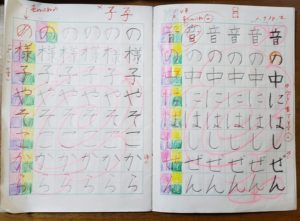 音の中にはしぜん
音の中にはしぜん
音の中にはしぜん
音の中にはしぜん
音の中にはしぜん
の様子やそこから
の様子やそこから
の様子やそこから
の様子やそこから
の様子やそこから
子子